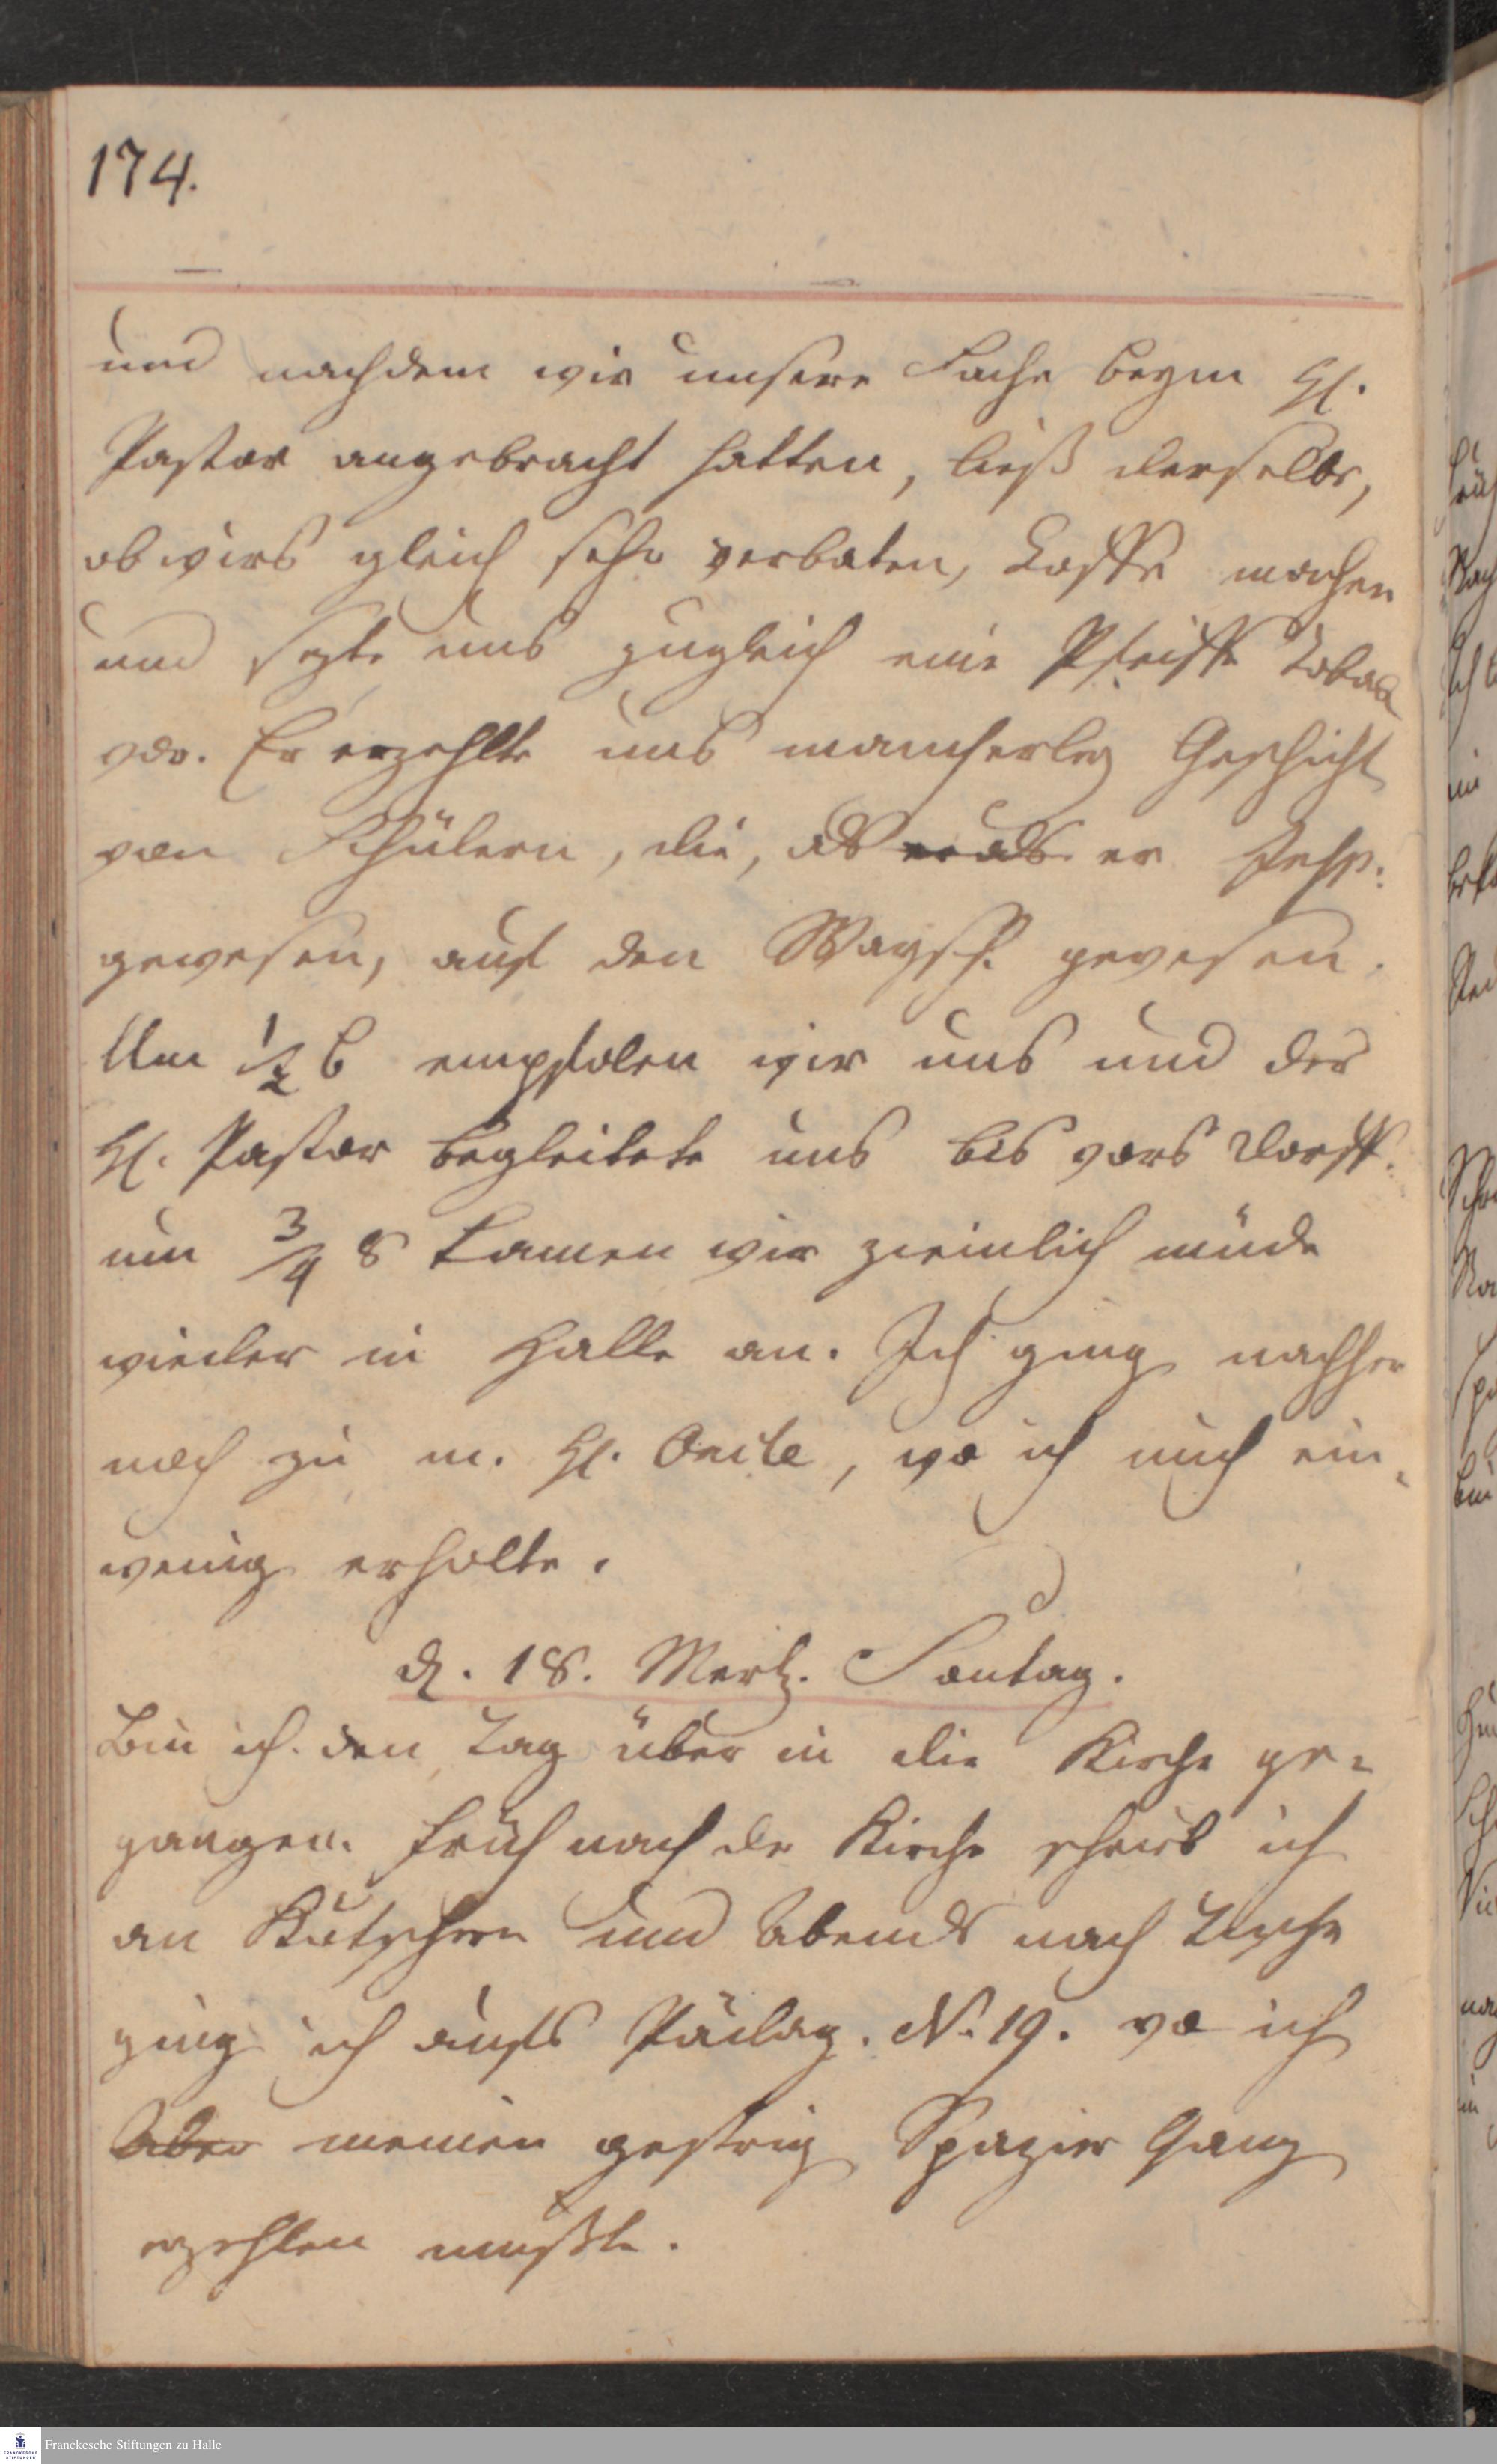 174.
und nachdem wir unsere Sache beym H.
Pastor angebracht hatten, ließ derselbe,
ob wirs gleich sehr verbaten, Coffe machen
und sezte uns zugleich eine Pfeiffe Toback
vor. Er erzehlte uns mancherley Geschicht
von Schülern, die, als er als er Insp.
gewesen, auf den Waysh. gewesen.
Um 1/2 6 empfolen wir uns und der
H. Pastor begleitete uns bis vors Dorff.
um 3/4 8 kamen wir ziemlich müde
wieder in Halle an. Ich ging nachher
noch zu m. H. Oncle, wo ich mich ein
wenig erholte.
d. 18. Mertz. Sontag.
Bin ich den Tag über in die Kirche ge-
gangen. Früh nach der Kirche schrieb ich
an Kutschern und Abends nach Tische
ging ich aufs Pädag. N. 19. wo ich
aber meinen gestrig Spazier Gang
erzehlen mußte.
Franckesche Stiftungen zu Halle